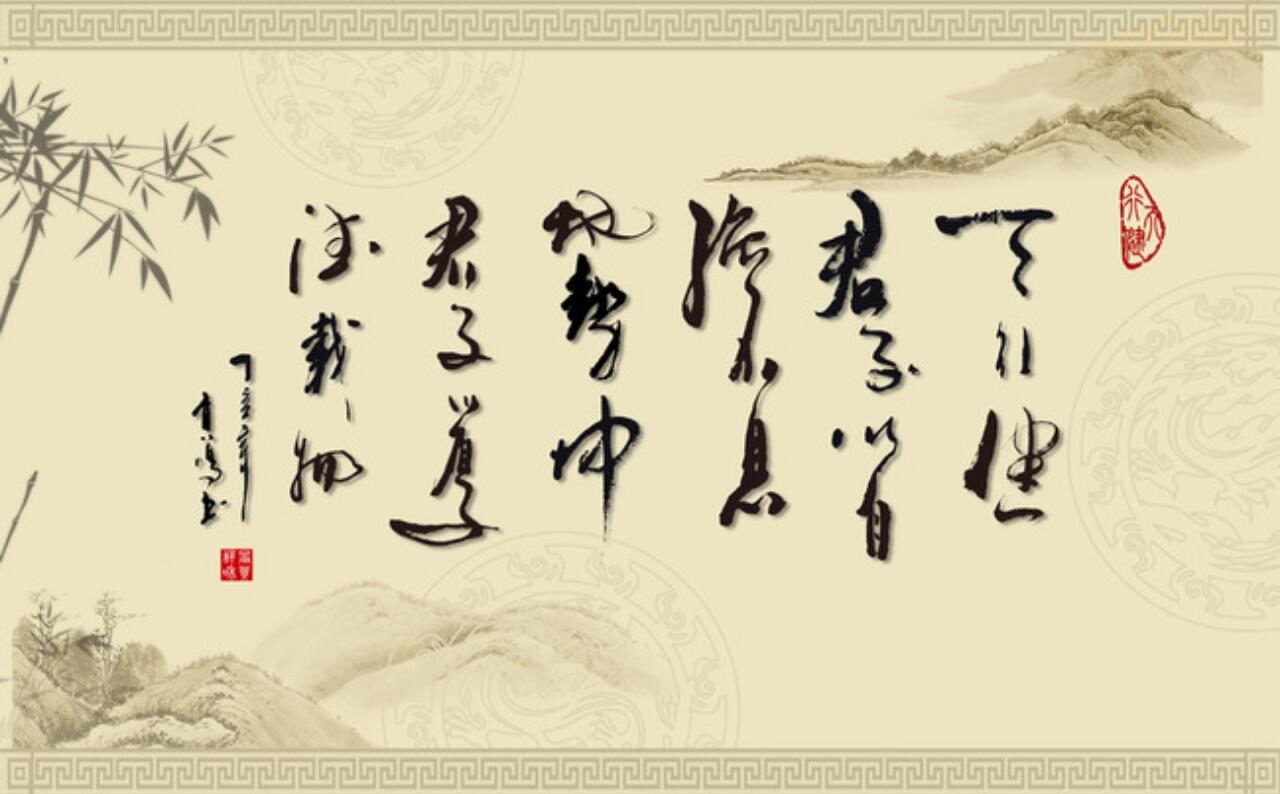 天行健
天行健
君子以自
强不息
地勢坤
君子以厚
德載物
丁亥年